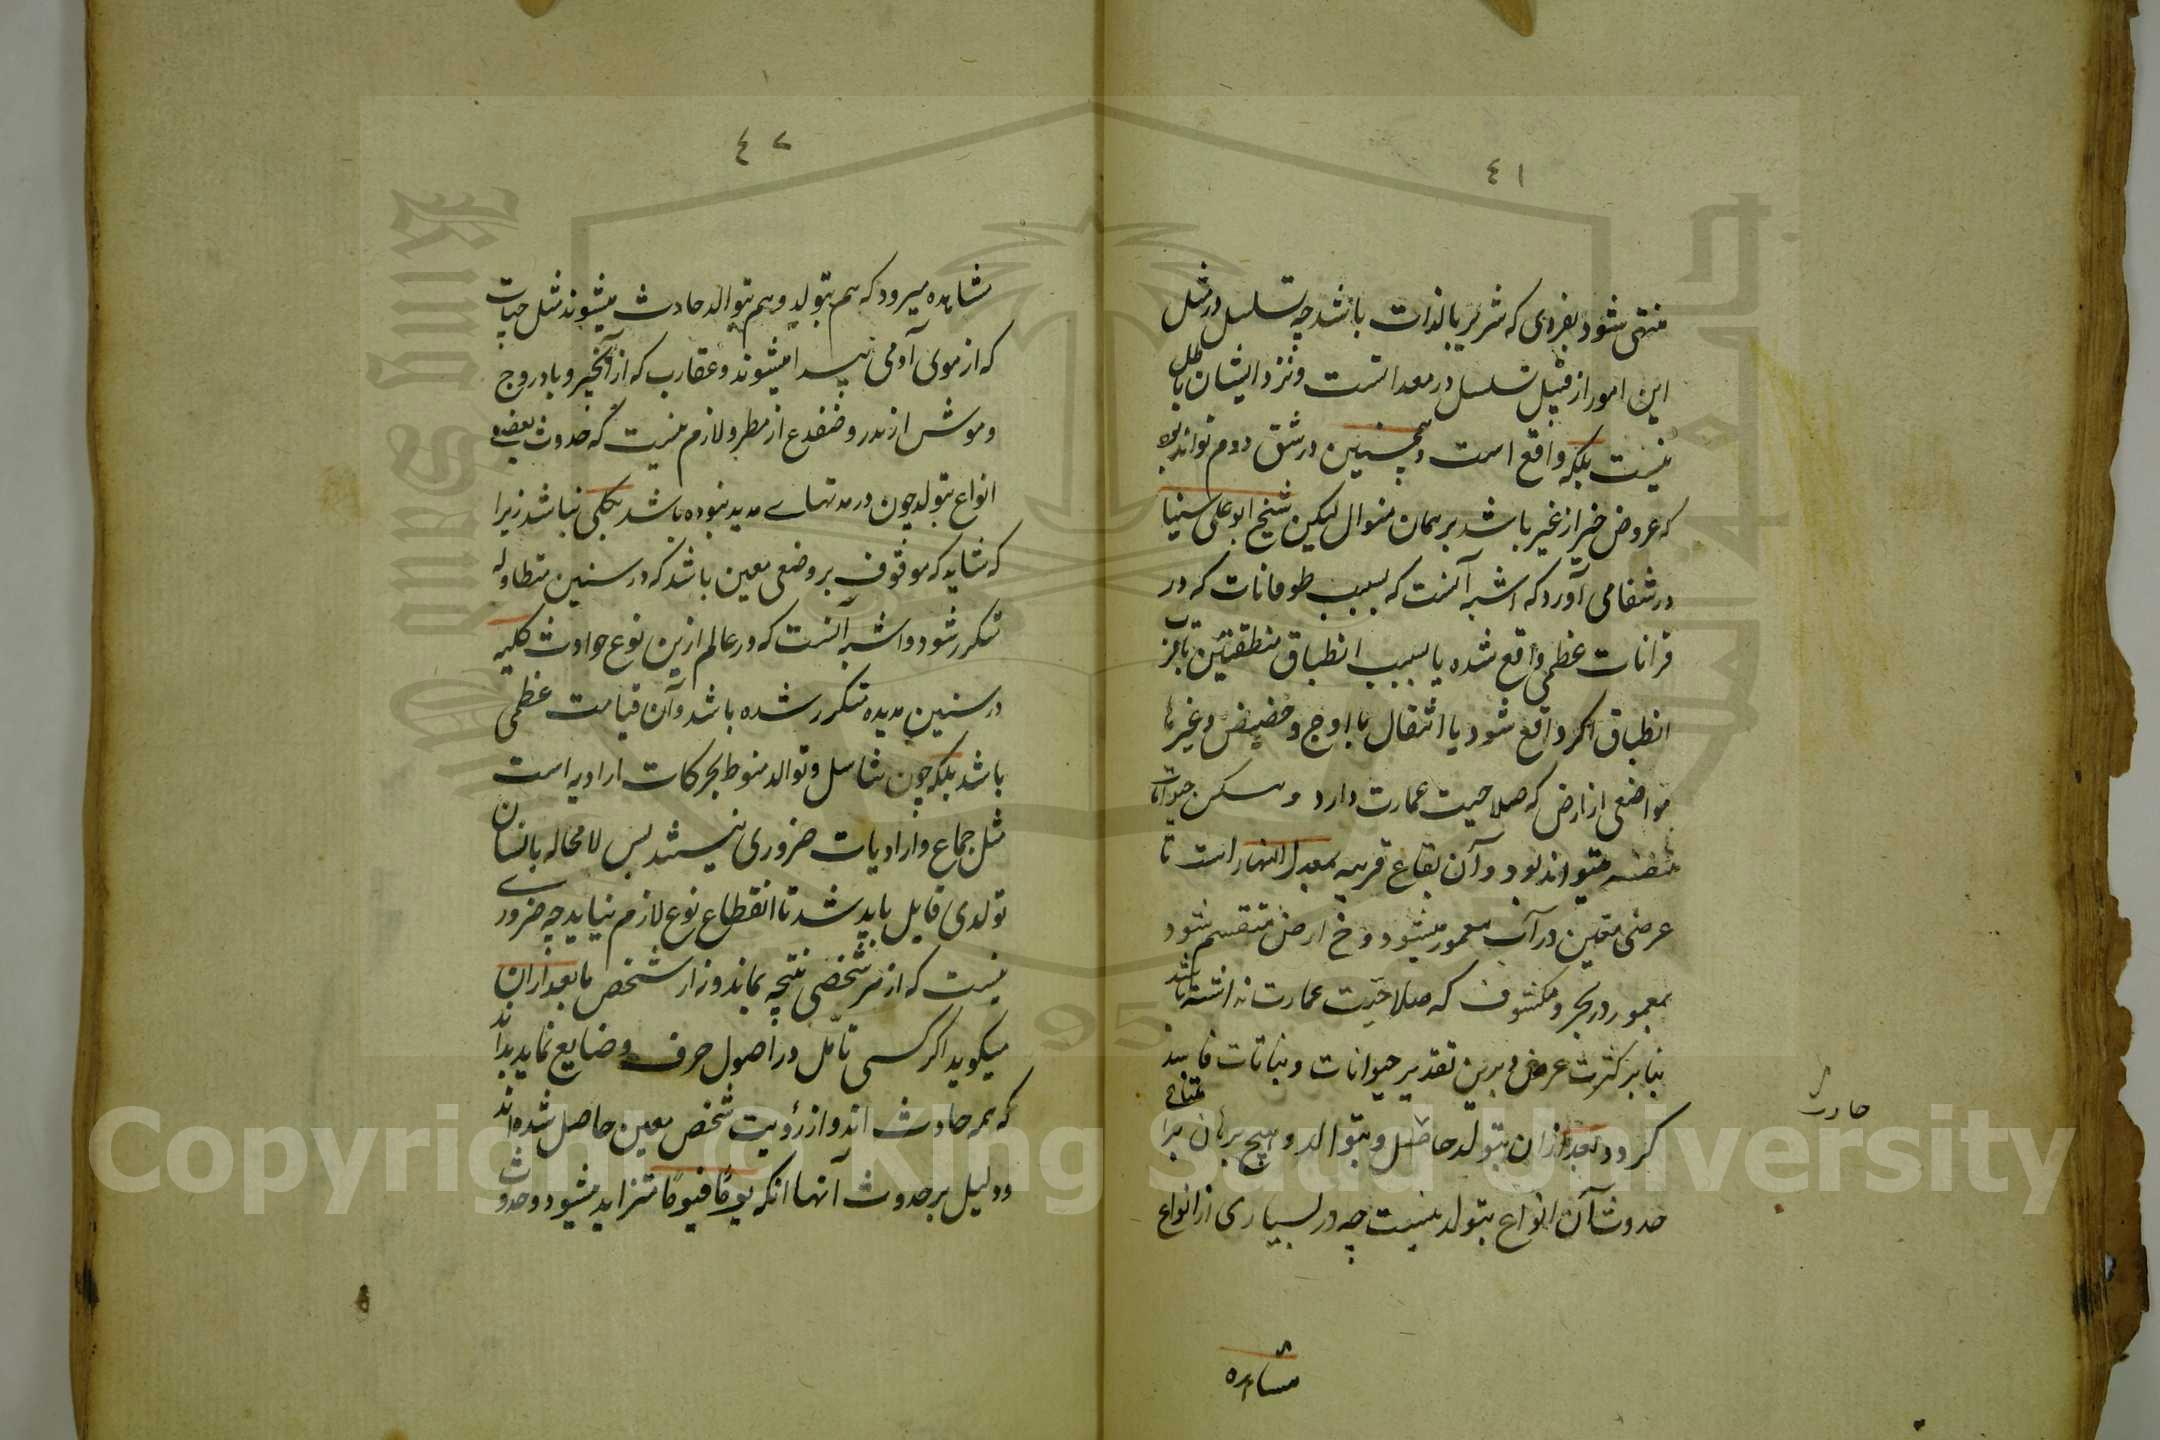 ٤١
منتهی شود بفردی که شریر بالذات باشد چه تسلسل در مثل
این امور از قبیل تسلسل در معدات است و نزد ایشان باطل
نیست بلکه واقع است و همچنین در شق دوم تواند بود
که عروض خیر از غیر باشد بر همان منوال لیکن شیخ ابو علی سینا
در شفا می آورد که اشبه آنست که بسبب طوفانات که در
قرانات عظمی واقع شده یا بسبب انطباق منطقتین یا قرب
انطباق اگر واقع شود یا انتقال یا اوج و حضیض و غیرها
مواضعی از ارض که صلاحیت عمارت دارد و مسکن حیوانات
متنفسه میتواند بود و آن بقاع قریبه بمعدل النهار است تا
عرضی معین در آب مغمور میشود و ح ارض منقسم شود
بمغمور در بحر و مکشوف که صلاحیت عمارت نداشته باشد
بنابر کثرت عرض و برین تقدیر حیوانات و نباتات فاسد
کردد بعد از آن بتولد حاصل و بتوالد و هیچ برهان بر امتناع
حدوث آن انواع بتولد نیست چه در بسیاری از انواع
حادث
مشاهده
٤٢
مشاهده میرود که هم بتولد و هم بتوالد حادث میشوند مثل حیات
که از موی آدمی پیدا میشوند و عقارب که از انجیر و بادروج
و موش از مدر و ضفدع از مطر و لازم نیست که حدوث بعضی
انواع بتولد چون در مدتهای مدید نبوده باشد بکلی نباشد زیرا
که شاید که موقوف بر وضعی معین باشد که در سنین متطاوله
متکرر شود و اشبه آنست که در عالم ازین نوع حوادث کلیه
در سنین مدیده متکرر شده باشد و آن قیامت عظمی
باشد بلکه چون تناسل و توالد منوط بحرکات ارادیه است
مثل جماع و ارادیات ضروری نیستند پس لا محاله بانسان
تولدی قایل باید شد تا انقطاع نوع لازم نیاید چه ضروری
نیست که از هر شخصی نتیجه بماند و نه از شخص ما بعد از آن
میکوید اگر کسی تامل در اصول حرف و صنایع نماید بداند
که همه حادث اند و از رؤیت شخص معین حاصل شده اند
و دلیل بر حدوث آنها آنکه یومًا فیومًا متزاید میشود و حدوث
Copyright © King Saud University
King Saud University